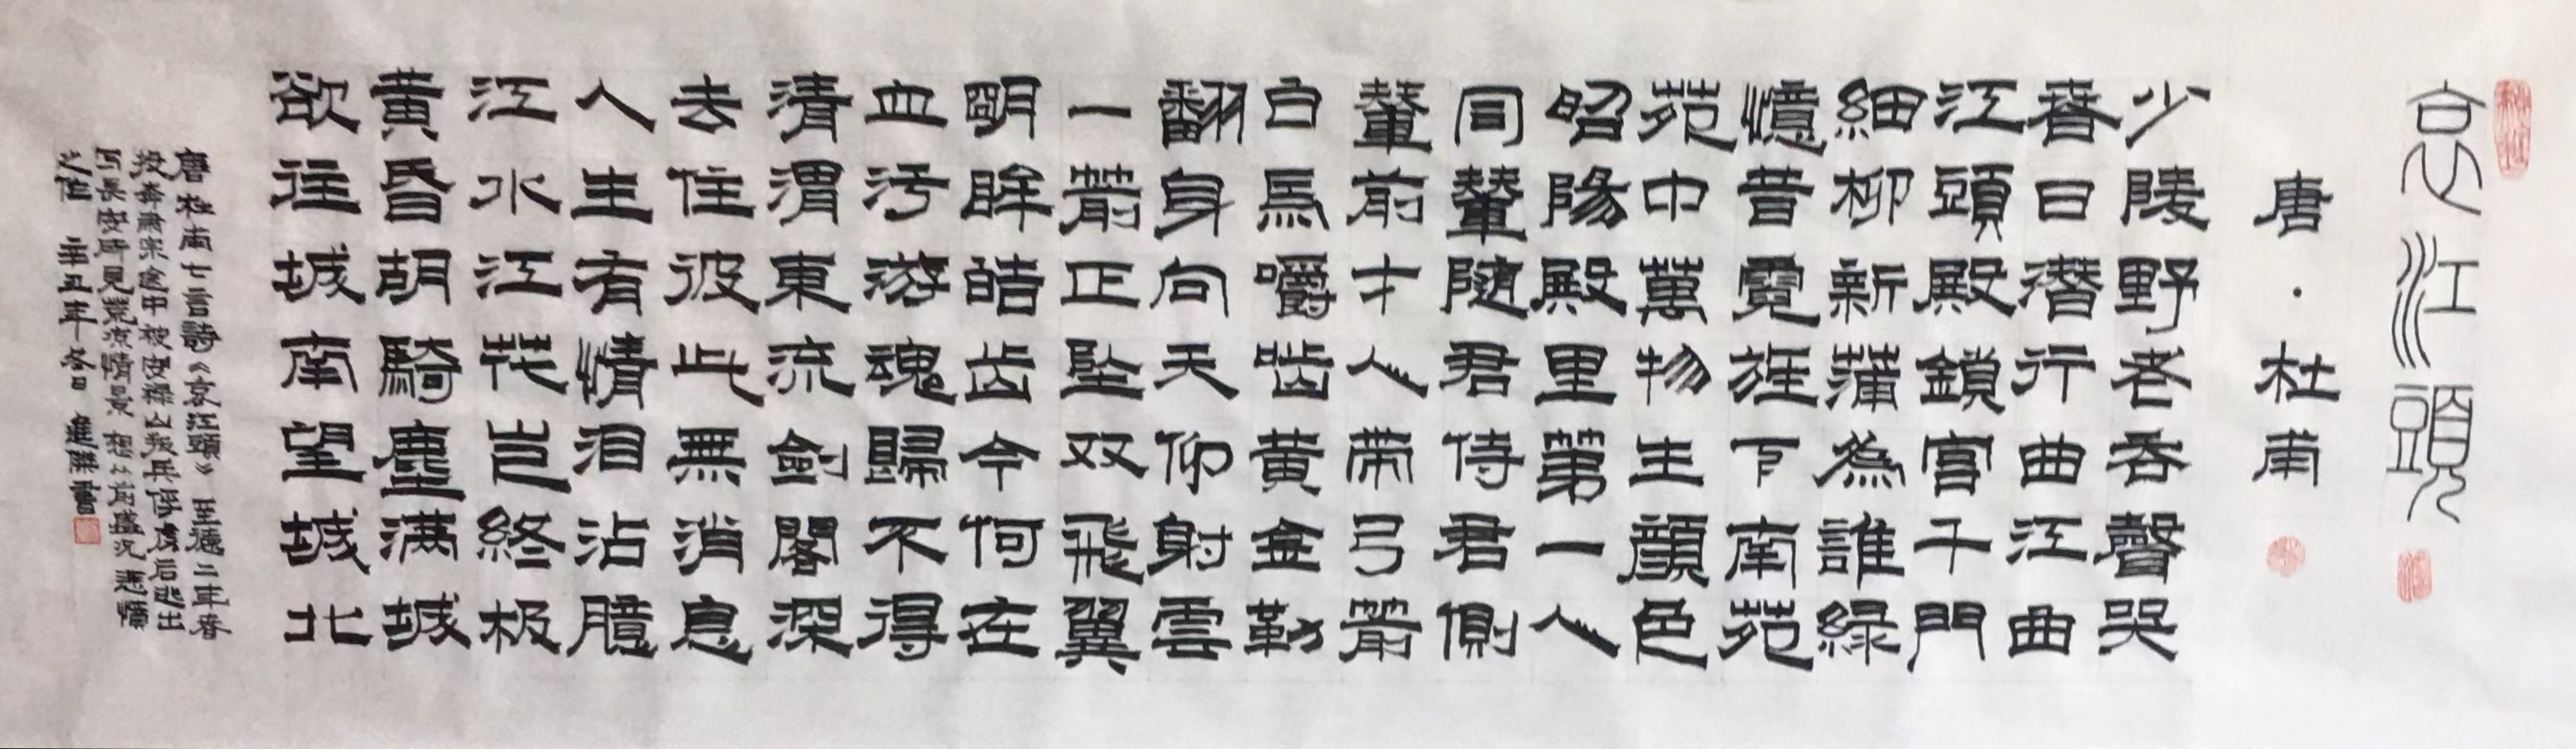 哀江頭
唐·杜甫
少陵野老吞聲哭
春日潛行曲江曲
江頭殿鎖宮千門
細柳新蒲為誰綠
憶昔霓旌下南苑
苑中萬物生顏色
昭陽殿里第一人
同輦隨君侍君側
輦前才人帶弓箭
白馬嚼啮黃金勒
翻身向天仰射雲
一箭正坠双飛翼
明眸皓齿今何在
血污游魂歸不得
清渭東流劍閣深
去住彼此無消息
人生有情泪沾臆
江水江花岂終极
黃昏胡騎塵滿城
欲往城南望城北
唐杜甫七言詩《哀江頭》至德二年春
投奔肅宗途中被安祿山叛兵俘虜后逃出
写長安所見荒凉情景想從前盛况悲慟
之作 辛丑年冬日 進聯書